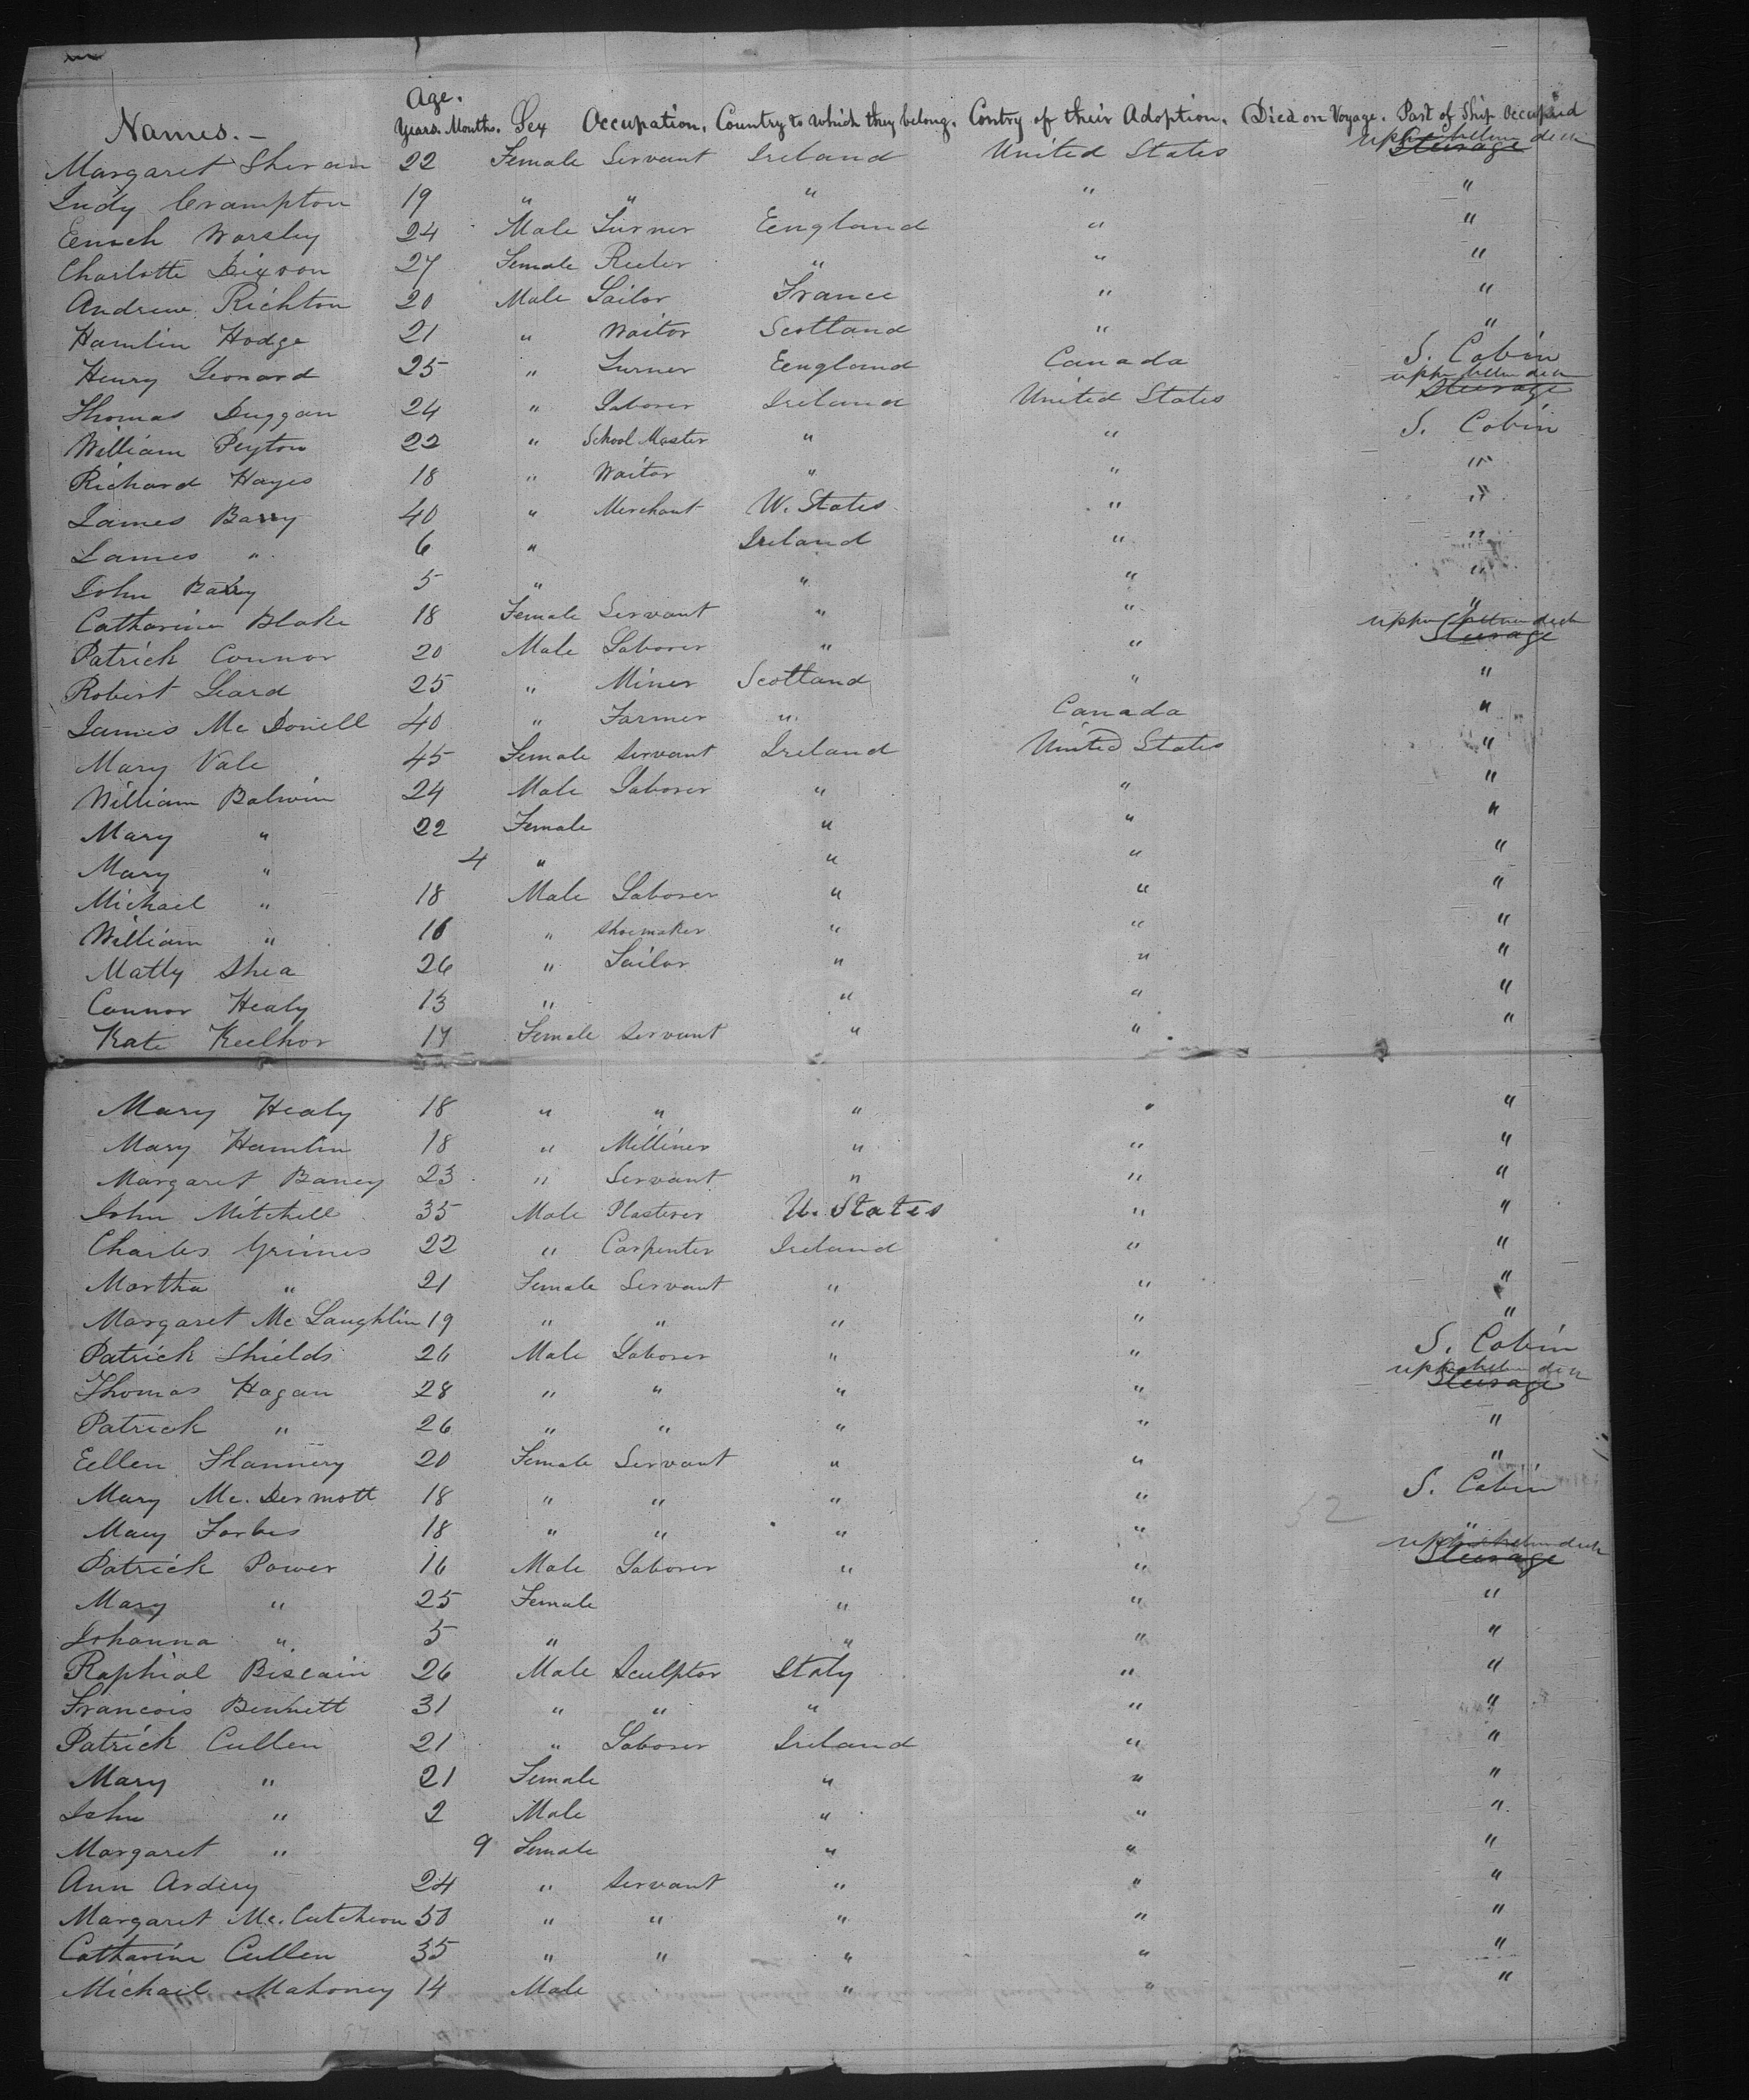 Age.
Names. — Years. Months. Sex Occupation. Country to which they belong. Contry of their Adoption. Died on Voyage. Part of Ship Occupied
upper between deck
Margaret Sheran 22 Female Servant Ireland United States Steerage
Judy Crampton 19 " " " " "
Enoch Worsley 24 Male Turner Eengland " "
Charlotte Dixson 27 Female Reeler " " "
Andrew Richton 20 Male Sailor France " "
Hamlin Hodge 21 " Waitor Scotland " "
Henry Leonard 25 " Turner Eengland Canada S. Cabin
upper between deck
Thomas Duggan 24 " Laborer Ireland United States Steerage
William Peyton 22 " School Master " " S. Cabin
Richard Hayes 18 " Waitor " " "
James Barry 40 " Merchant U. States " "
James " 6 " Ireland " "
John Barry 5 " " " "
Catharine Blake 18 Female Servant " " "
upper between deck
Patrick Connor 20 Male Laborer " " Steerage
Robert Leard 25 " Miner Scotland " "
James Mc Donell 40 " Farmer " Canada "
Mary Vale 45 Female Servant Ireland United States "
William Balwin 24 Male Laborer " " "
Mary " 22 Female " " "
Mary " 4 " " " "
Michael " 18 Male Laborer " " "
William " 16 " Shoemaker " " "
Matty Shea 26 " Sailor " " "
Connor Healy 13 " " " "
Kate Keelhor 17 Female Servant " " "
Mary Healy 18 " " " " "
Mary Hamlin 18 " Milliner " " "
Margaret Baney 23 " Servant " " "
John Mitchell 35 Male Plasterer U. States " "
Charles Grimes 22 " Carpenter Ireland " "
Martha " 21 Female Servant " " "
Margaret Mc Laughlin 19 " " " " "
Patrick Shields 26 Male Laborer " " S. Cabin
upper between deck
Thomas Hagan 28 " " " " Steerage
Patrick " 26 " " " " "
Eellen Flannery 20 Female Servant " " "
Mary Mc. Dermott 18 " " " " S. Cabin
52
Mary Forbes 18 " " " " "
upper between deck
Patrick Power 16 Male Laborer " " Steerage
Mary " 25 Female " " "
Johanna " 5 " " " "
Raphial Biscain 26 Male Sculptor Italy " "
Francois Bennett 31 " " " " "
Patrick Cullen 21 " Laborer Ireland " "
Mary " 21 Female " " "
John " 2 Male " " "
Margaret " 9 Female " " "
Ann Ardery 24 " Servant " " "
Margaret Mc. Cutcheon 50 " " " " "
Catharine Cullen 35 " " " " "
Michael Mahoney 14 Male " " "